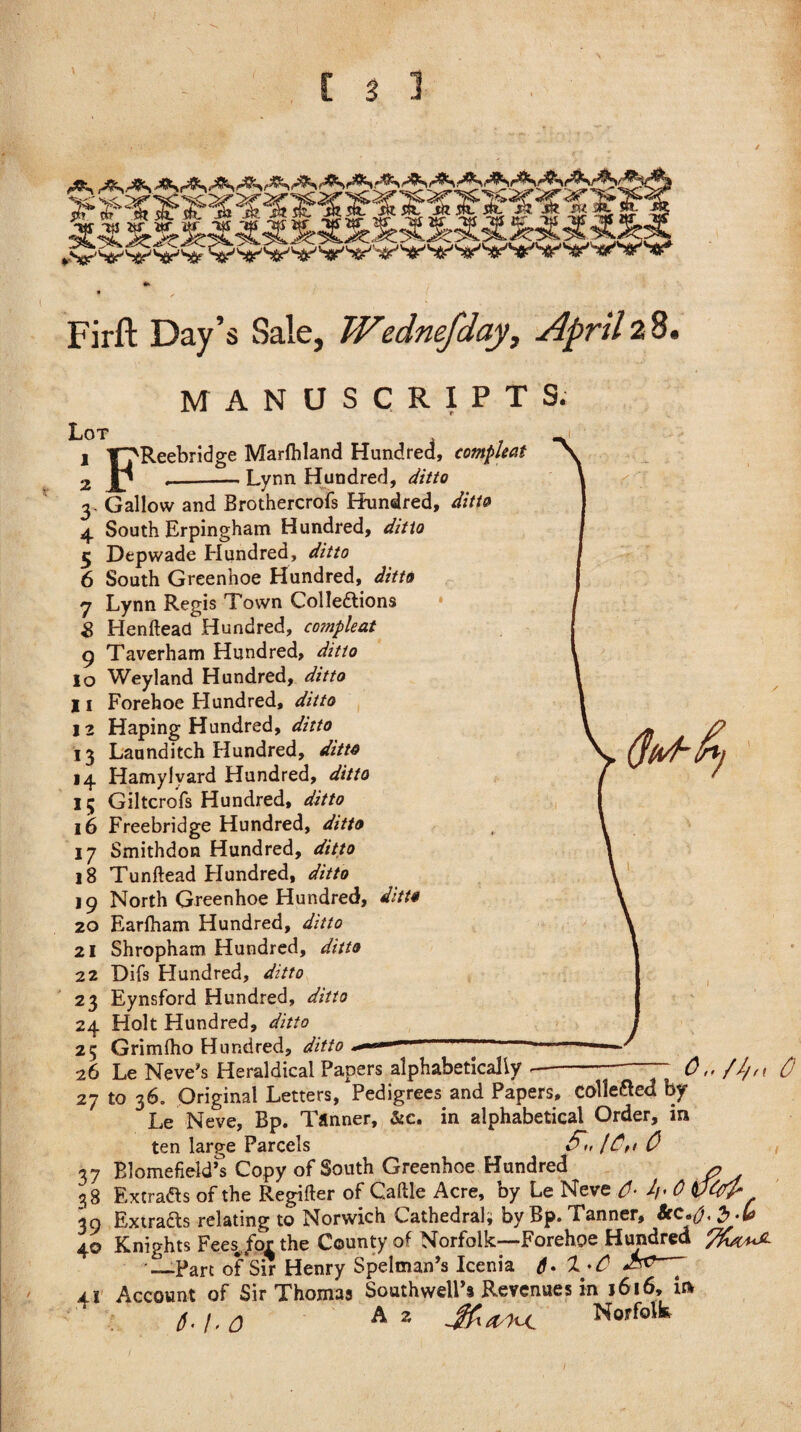 [ 3 ]
Firſt Day's Sale, Wedneſday, April 28.
MANUSCRIPTS.
Lot
1 FReebridge Marſhland Hundred, compleat
2 ——— Lynn Hundred, ditto
3 Gallow and Brothercroſs Hundred, ditto
4 South Erpingham Hundred, ditto
5 Depwade Hundred, ditto
6 South Greenhoe Hundred, ditto
7 Lynn Regis Town Collections
8 Henſtead Hundred, compleat
9 Taverham Hundred, ditto
10 Weyland Hundred, ditto
11 Forehoe Hundred, ditto
12 Haping Hundred, ditto
13 Launditch Hundred, ditto
14 Hamylyard Hundred, ditto
15 Giltcroſs Hundred, ditto
16 Freebridge Hundred, ditto
17 Smithdon Hundred, ditto
18 Tunſtead Hundred, ditto
19 North Greenhoe Hundred, ditto
20 Earſham Hundred, ditto
21 Shropham Hundred, ditto
22 Diſs Hundred, ditto
23 Eynsford Hundred, ditto
24 Holt Hundred, ditto
25 Grimſho Hundred, ditto
26 Le Neve's Heraldical Papers alphabetically — 0,, 14,, 0
27 to 36. Original Letters, Pedigrees and Papers, collected by
Le Neve, Bp. Tanner, &c. in alphabetical Order, in
ten large Parcels 5,, 10,, 0
37 Blomefield's Copy of South Greenhoe Hundred
38 Extracts of the Regiſter of Caſtle Acre, by Le Neve 0. 4. 0
39 Extracts relating to Norwich Cathedral, by Bp. Tanner, &c. 0. 3. 6
40 Knights Fees for the County of Norfolk—Forehoe Hundred
—Part of Sir Henry Spelman's Icenia 0. 2. 0
41 Account of Sir Thomas Southwell's Revenues in 1616, in
0. 1. 0 A 2 Norfolk